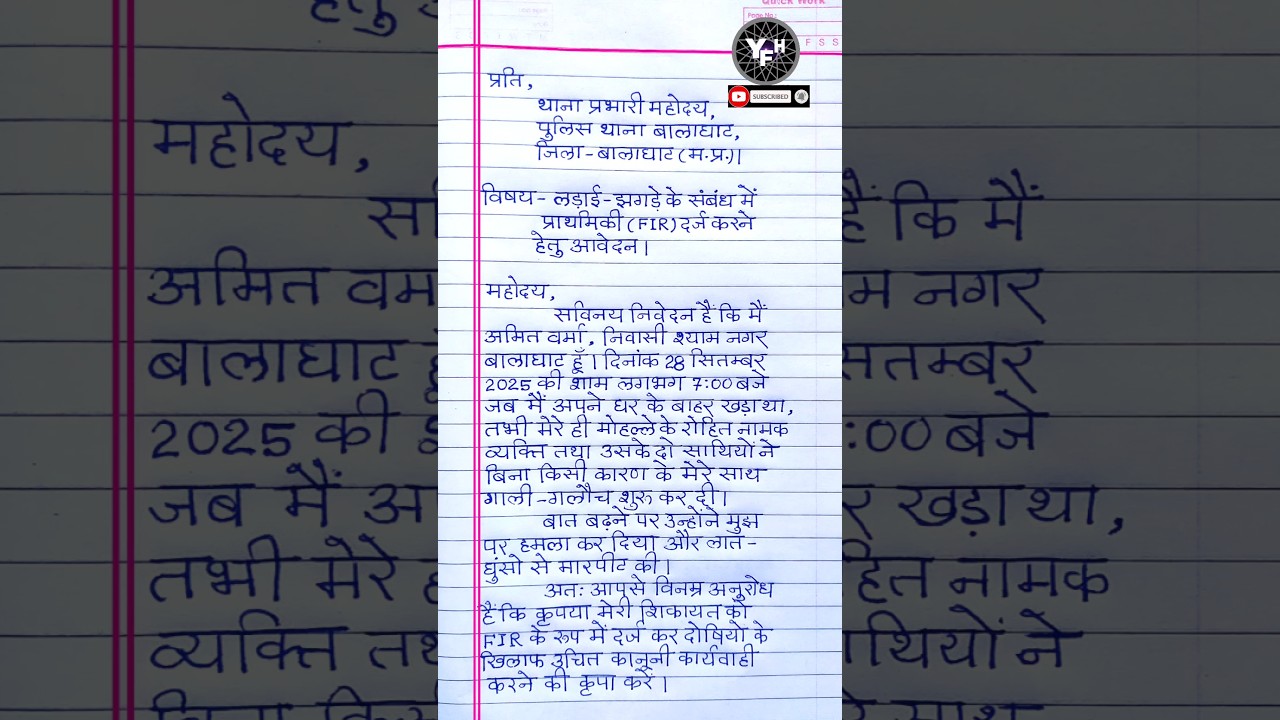 Quick Work
Page No.:
F S S
YFH
SUBSCRIBED
प्रति,
थाना प्रभारी महोदय,
पुलिस थाना बालाघाट,
जिला-बालाघाट (म.प्र.)।
विषय- लड़ाई-झगड़े के संबंध में
प्राथमिकी (FIR) दर्ज करने
हेतु आवेदन।
महोदय,
सविनय निवेदन हैं कि मैं
अमित वर्मा, निवासी श्याम नगर
बालाघाट हूँ। दिनांक 28 सितम्बर
2025 की शाम लगभग 7:00 बजे
जब मैं अपने घर के बाहर खड़ा था,
तभी मेरे ही मोहल्ले के रोहित नामक
व्यक्ति तथा उसके दो साथियों ने
बिना किसी कारण के मेरे साथ
गाली-गलौच शुरु कर दी।
बात बढ़ने पर उन्होंने मुझ
पर हमला कर दिया और लात-
घुंसो से मारपीट की।
अतः आपसे विनम्र अनुरोध
हैं कि कृपया मेरी शिकायत को
FIR के रुप में दर्ज कर दोषियों के
खिलाफ उचित कानूनी कार्यवाही
करने की कृपा करें।